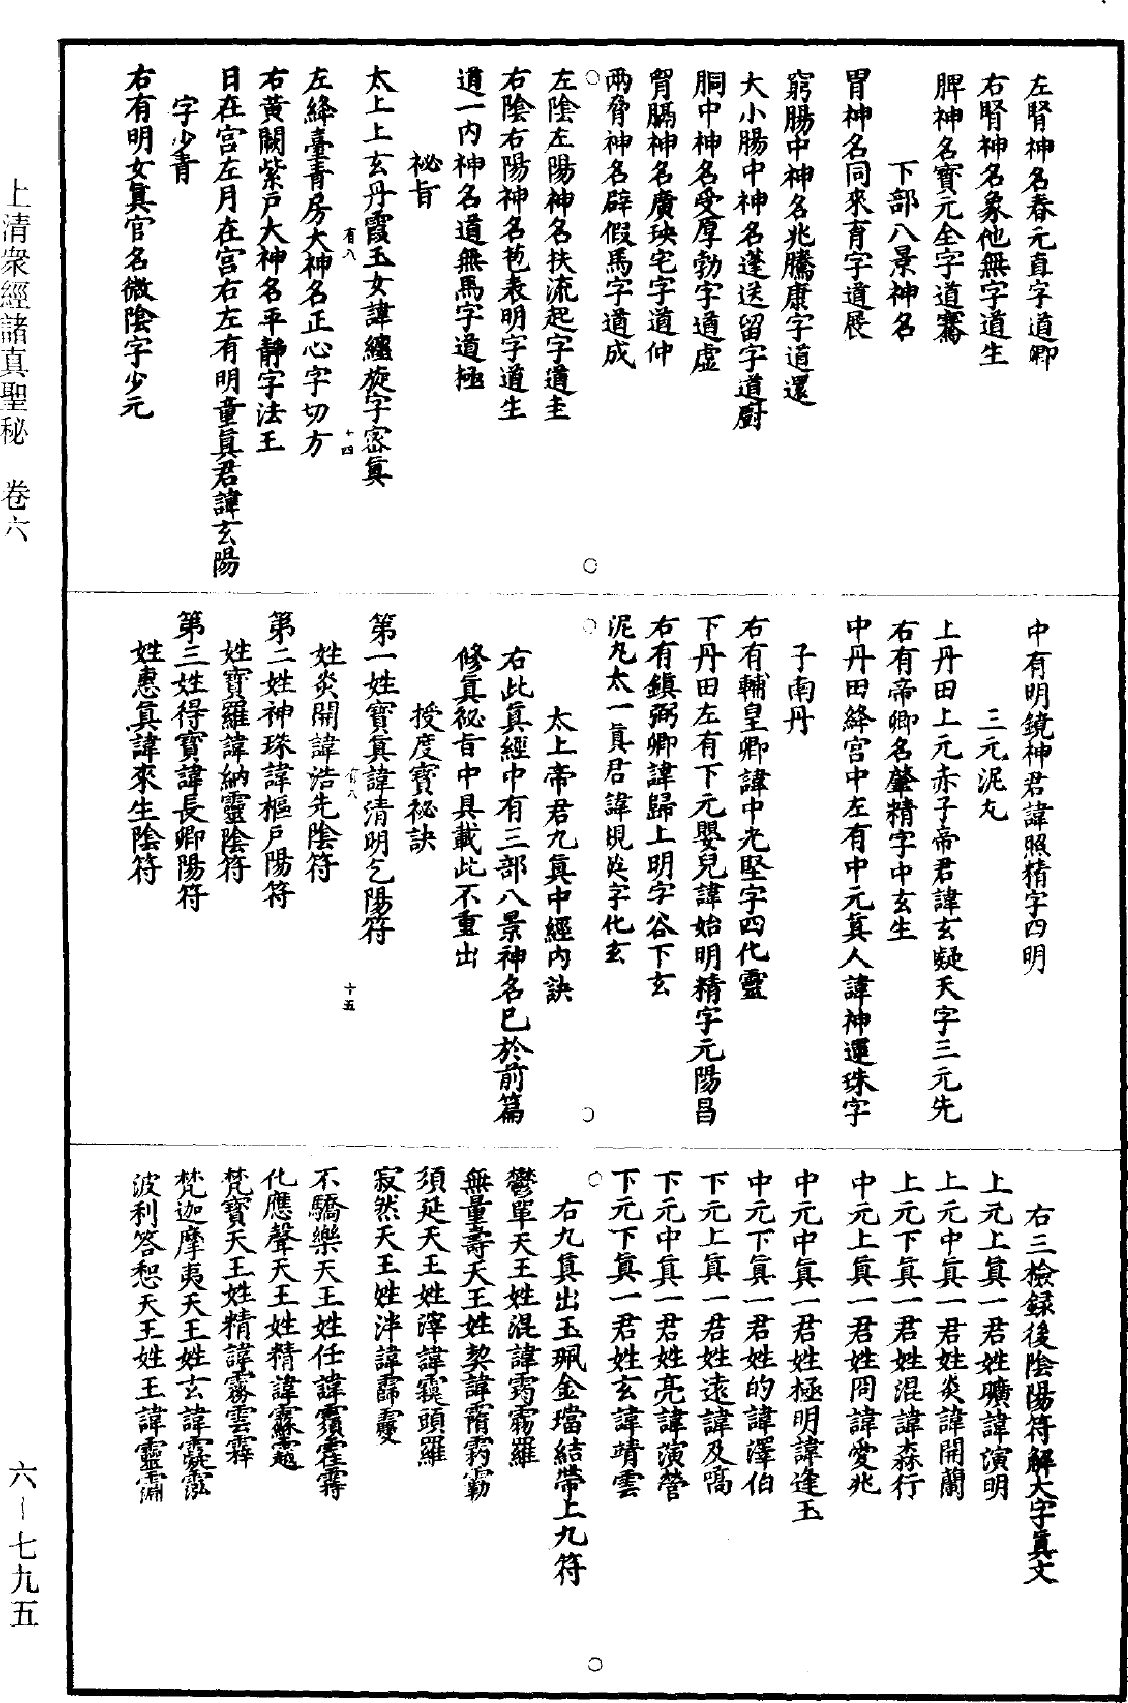 左腎神名春元直字道卿
右腎神名象他無字道生
脾神名寶元全字道騫
下部八景神名
胃神名同來育字道展
窮腸中神名兆騰康字道還
大小腸中神名蓬送留字道廚
胴中神名受厚勃字道虛
胷膈神名廣瑛宅字道仲
兩脅神名辟假馬字道成
左陰左陽神名扶流起字道圭
右陰右陽神名苞表明字道生
道一內神名道無馬字道極
祕旨
太上上玄丹霞玉女諱纏旋字密真
有八
十四
左絳臺青房大神名正心字切方
右黃闕紫戶大神名平靜字法王
日在宮左月在宮右左有明童真君諱玄陽
字少青
右有明女真官名微陰字少元
中有明鏡神君諱照精字四明
三元泥丸
上丹田上元赤子帝君諱玄凝天字三元先
右有帝卿名肇精字中玄生
中丹田絳宮中左有中元真人諱神運珠字
子南丹
右有輔皇卿諱中光堅字四化靈
下丹田左有下元嬰兒諱始明精字元陽昌
右有鎮弼卿諱歸上明字谷下玄
泥丸太一真君諱規英字化玄
太上帝君九真中經內訣
右此真經中有三部八景神名已於前篇
修真祕旨中具載此不重出
授度寶祕訣
第一姓寶真諱清明乞陽符
有八
十五
姓炎開諱浩先陰符
第二姓神珠諱樞戶陽符
姓寶羅諱納靈陰符
第三姓得寶諱長卿陽符
姓惠真諱來生陰符
右三檢錄後陰陽符解大字真文
上元上真一君姓曠諱演明
上元中真一君姓炎諱開蘭
上元下真一君姓混諱森行
中元上真一君姓冏諱愛兆
中元中真一君姓極明諱逢玉
中元下真一君姓的諱澤伯
下元上真一君姓遠諱及
下元中真一君姓亮諱演營
下元下真一君姓玄諱靖雲
右九真出玉珮金璫結帶上九符
鬱單天王姓混諱霧羅
無量壽天王姓契諱
須延天王姓滓諱頭羅
寂然天王姓泮諱
不驕樂天王姓任諱
化應聲天王姓精諱
梵寶天王姓精諱霧雲
梵迦摩夷天王姓玄諱
波利答惒天王姓王諱靈
上清衆經諸真聖秘 卷六
六-七九五